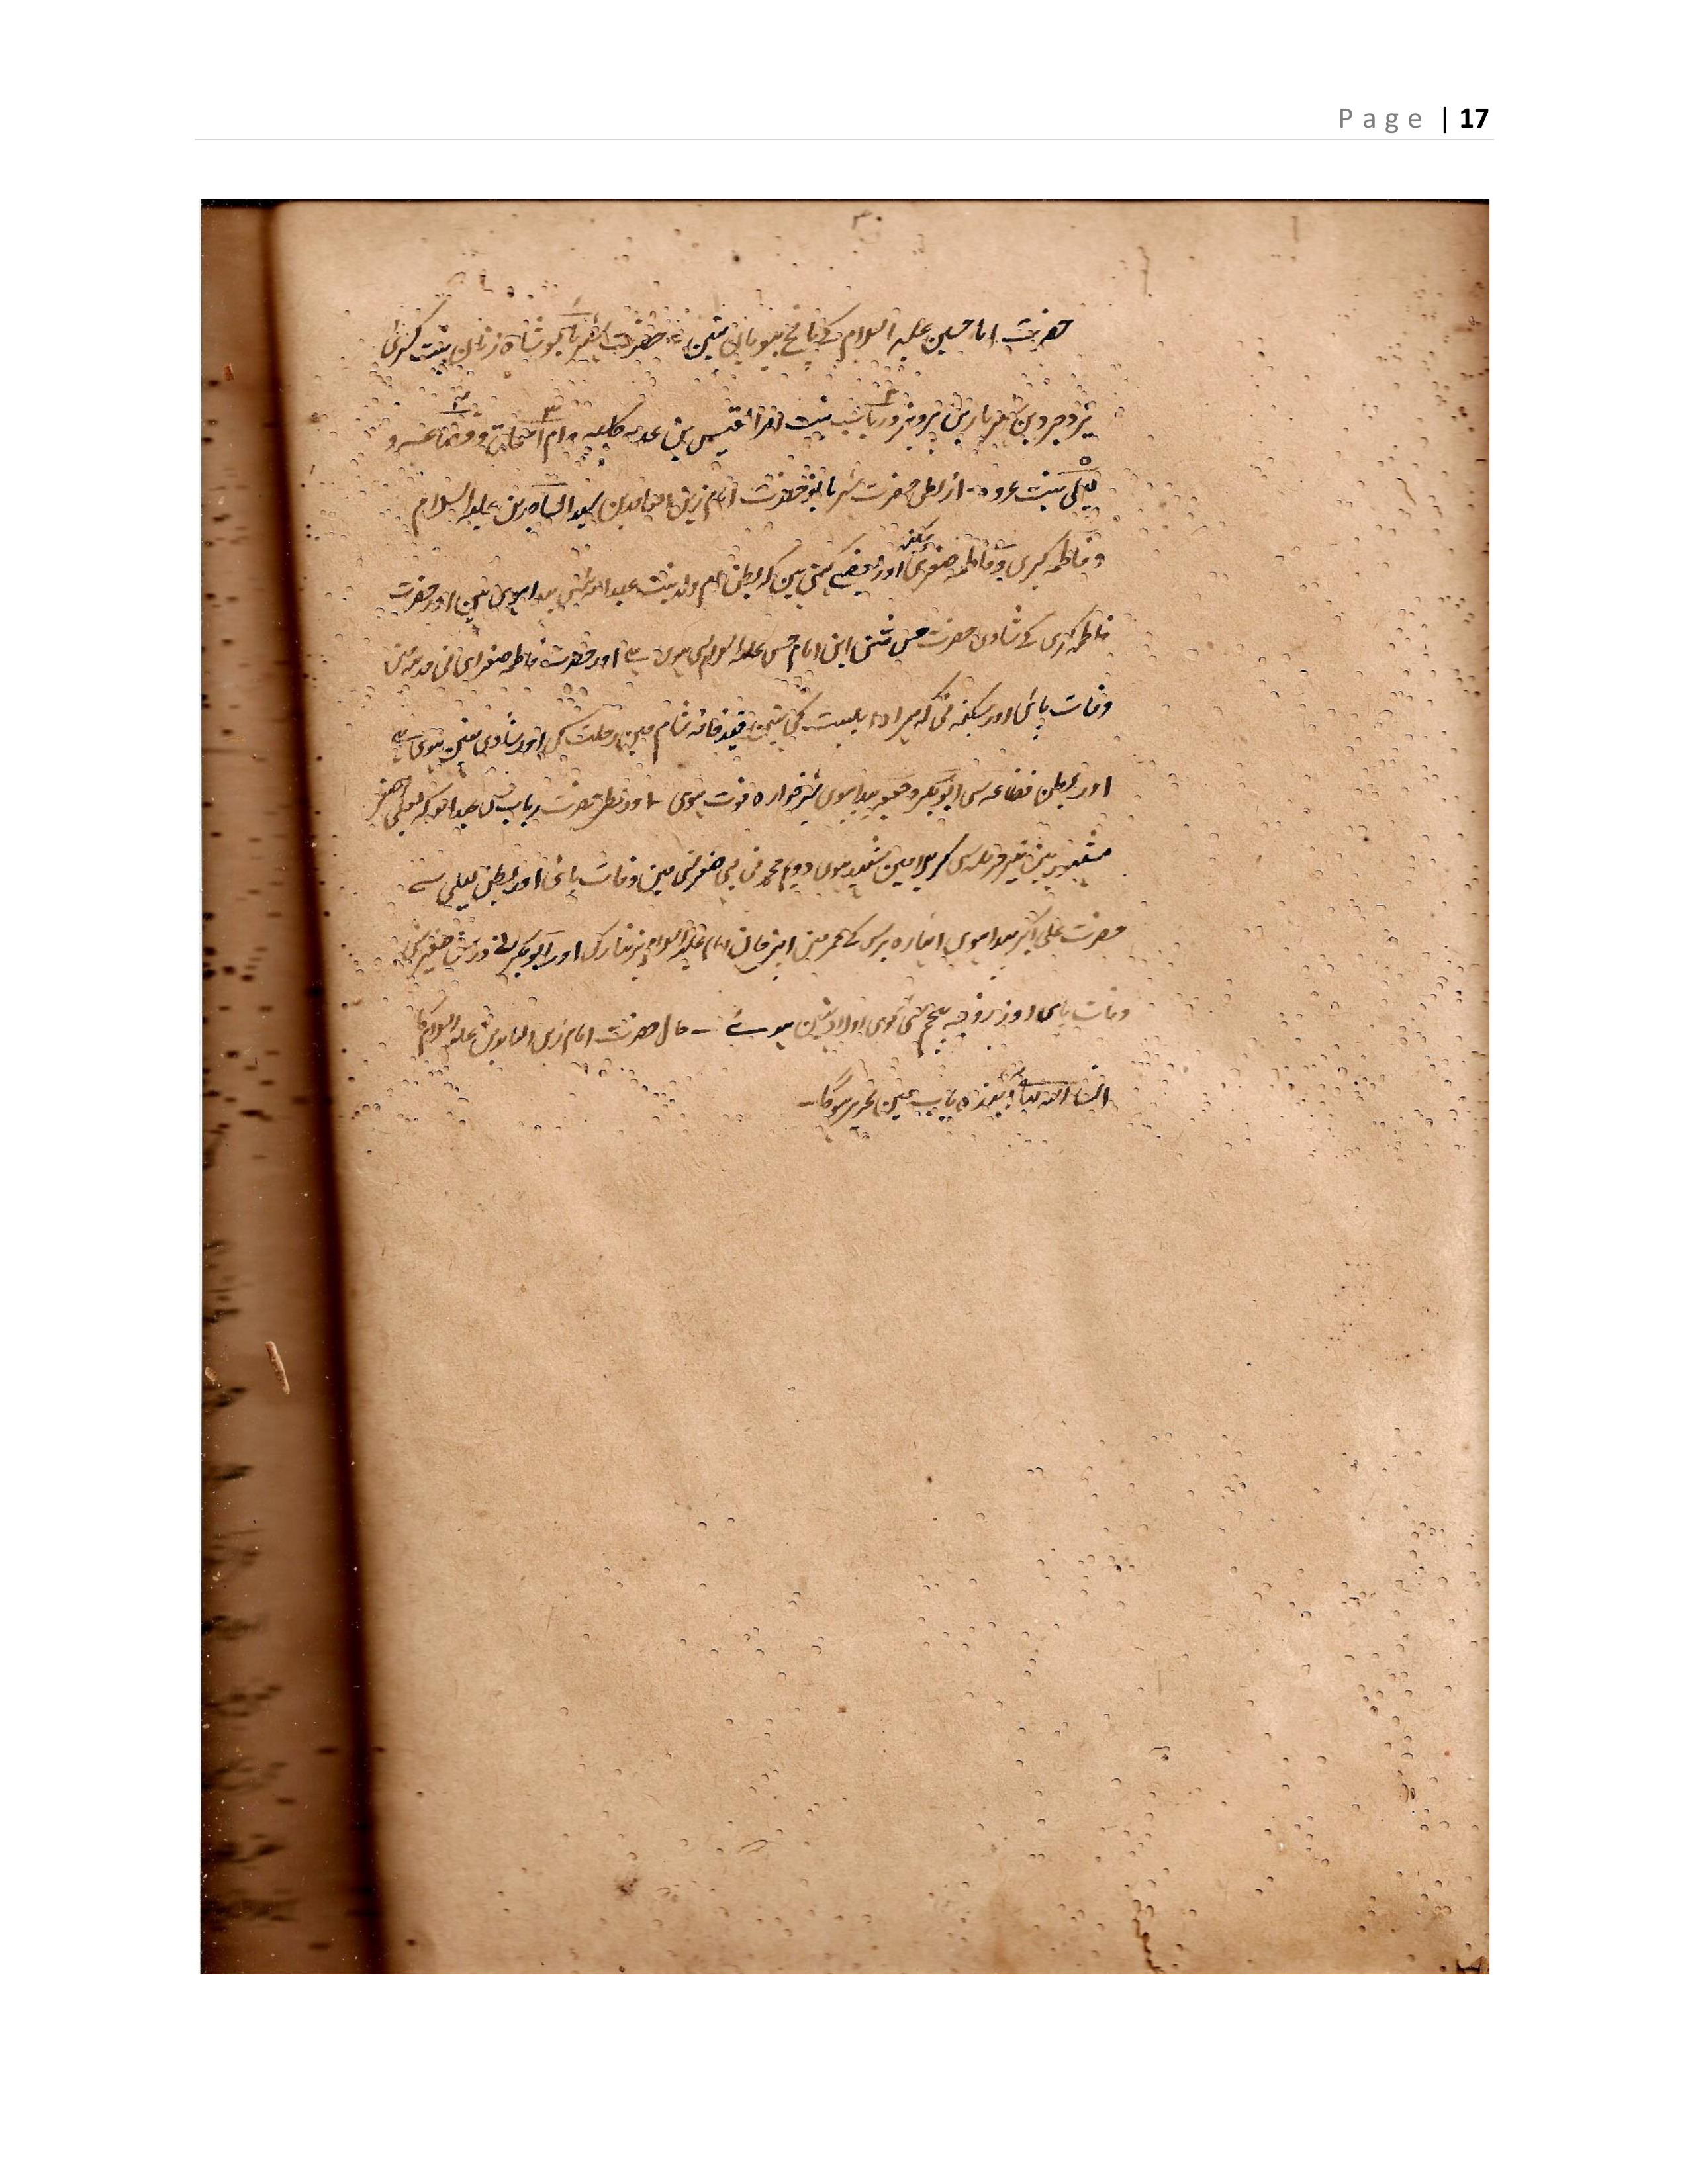 Page | 17
۳۰
حضرت امام حسین علیہ السلام کے پانچ بیویاں تہین حضرت شہربانو شاہ زنان بنت کسریٰ
یزدجرد بن شہریار بن پرویز و رباب بنت امراالقیس بن عدی کلبیہ و ام اسحاق و قضاعیہ و
لیلی بنت عروہ از بطن حضرت شہربانو حضرت امام زین العابدین سید الساجدین علیہ السلام
و فاطمہ کبری و فاطمہ صغری سکینہ اور بعضے کہتی ہین کہ بطن ام ولد بنت عبداللہ سی پیدا ہوی تہین اور حضرت
فاطمہ کبری کے شادی حضرت حسن مثنی ابن امام حسن علیہ السلام سی ہوی ہے اور حضرت فاطمہ صغرای نی مدینہ مین
وفات پائی اور سکینہ نی کہ ہمراہ اہلبیت کی تہین قید خانہ شام مین رحلت کی اور شادی نہین ہوی ہے
اور بطن قضاعہ سی ابوبکر و جعفر پیدا ہوی شیر خوارہ فوت ہوی اور بطن حضرت رباب سی عبداللہ کہ علی اصغر
مشہور ہین تیر حرملہ سی کربلا مین شہید ہوی دویم محمد نی بی صغر سنی مین وفات پائی اور بطن لیلی سے
حضرت علی اکبر پیدا ہوی اٹہارہ برس کے عمر مین اپنی جان امام علیہ السلام پر نثار کی اور ابوبکر نے در سن صغیر سنی
وفات پای اور زوجہ پنجم سی کوی اولاد نہین ہوے ۔ حال حضرت امام زین العابدین علیہ السلام کا
انشا اللہ باب مین تحریر ہوگا۔